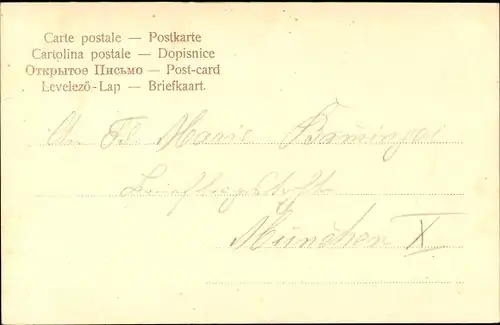 Carte postale — Postkarte
Cartolina postale — Dopisnice
Открытое Письмо — Post-card
Levelező-Lap — Briefkaart.
An Frl. Marie
München X